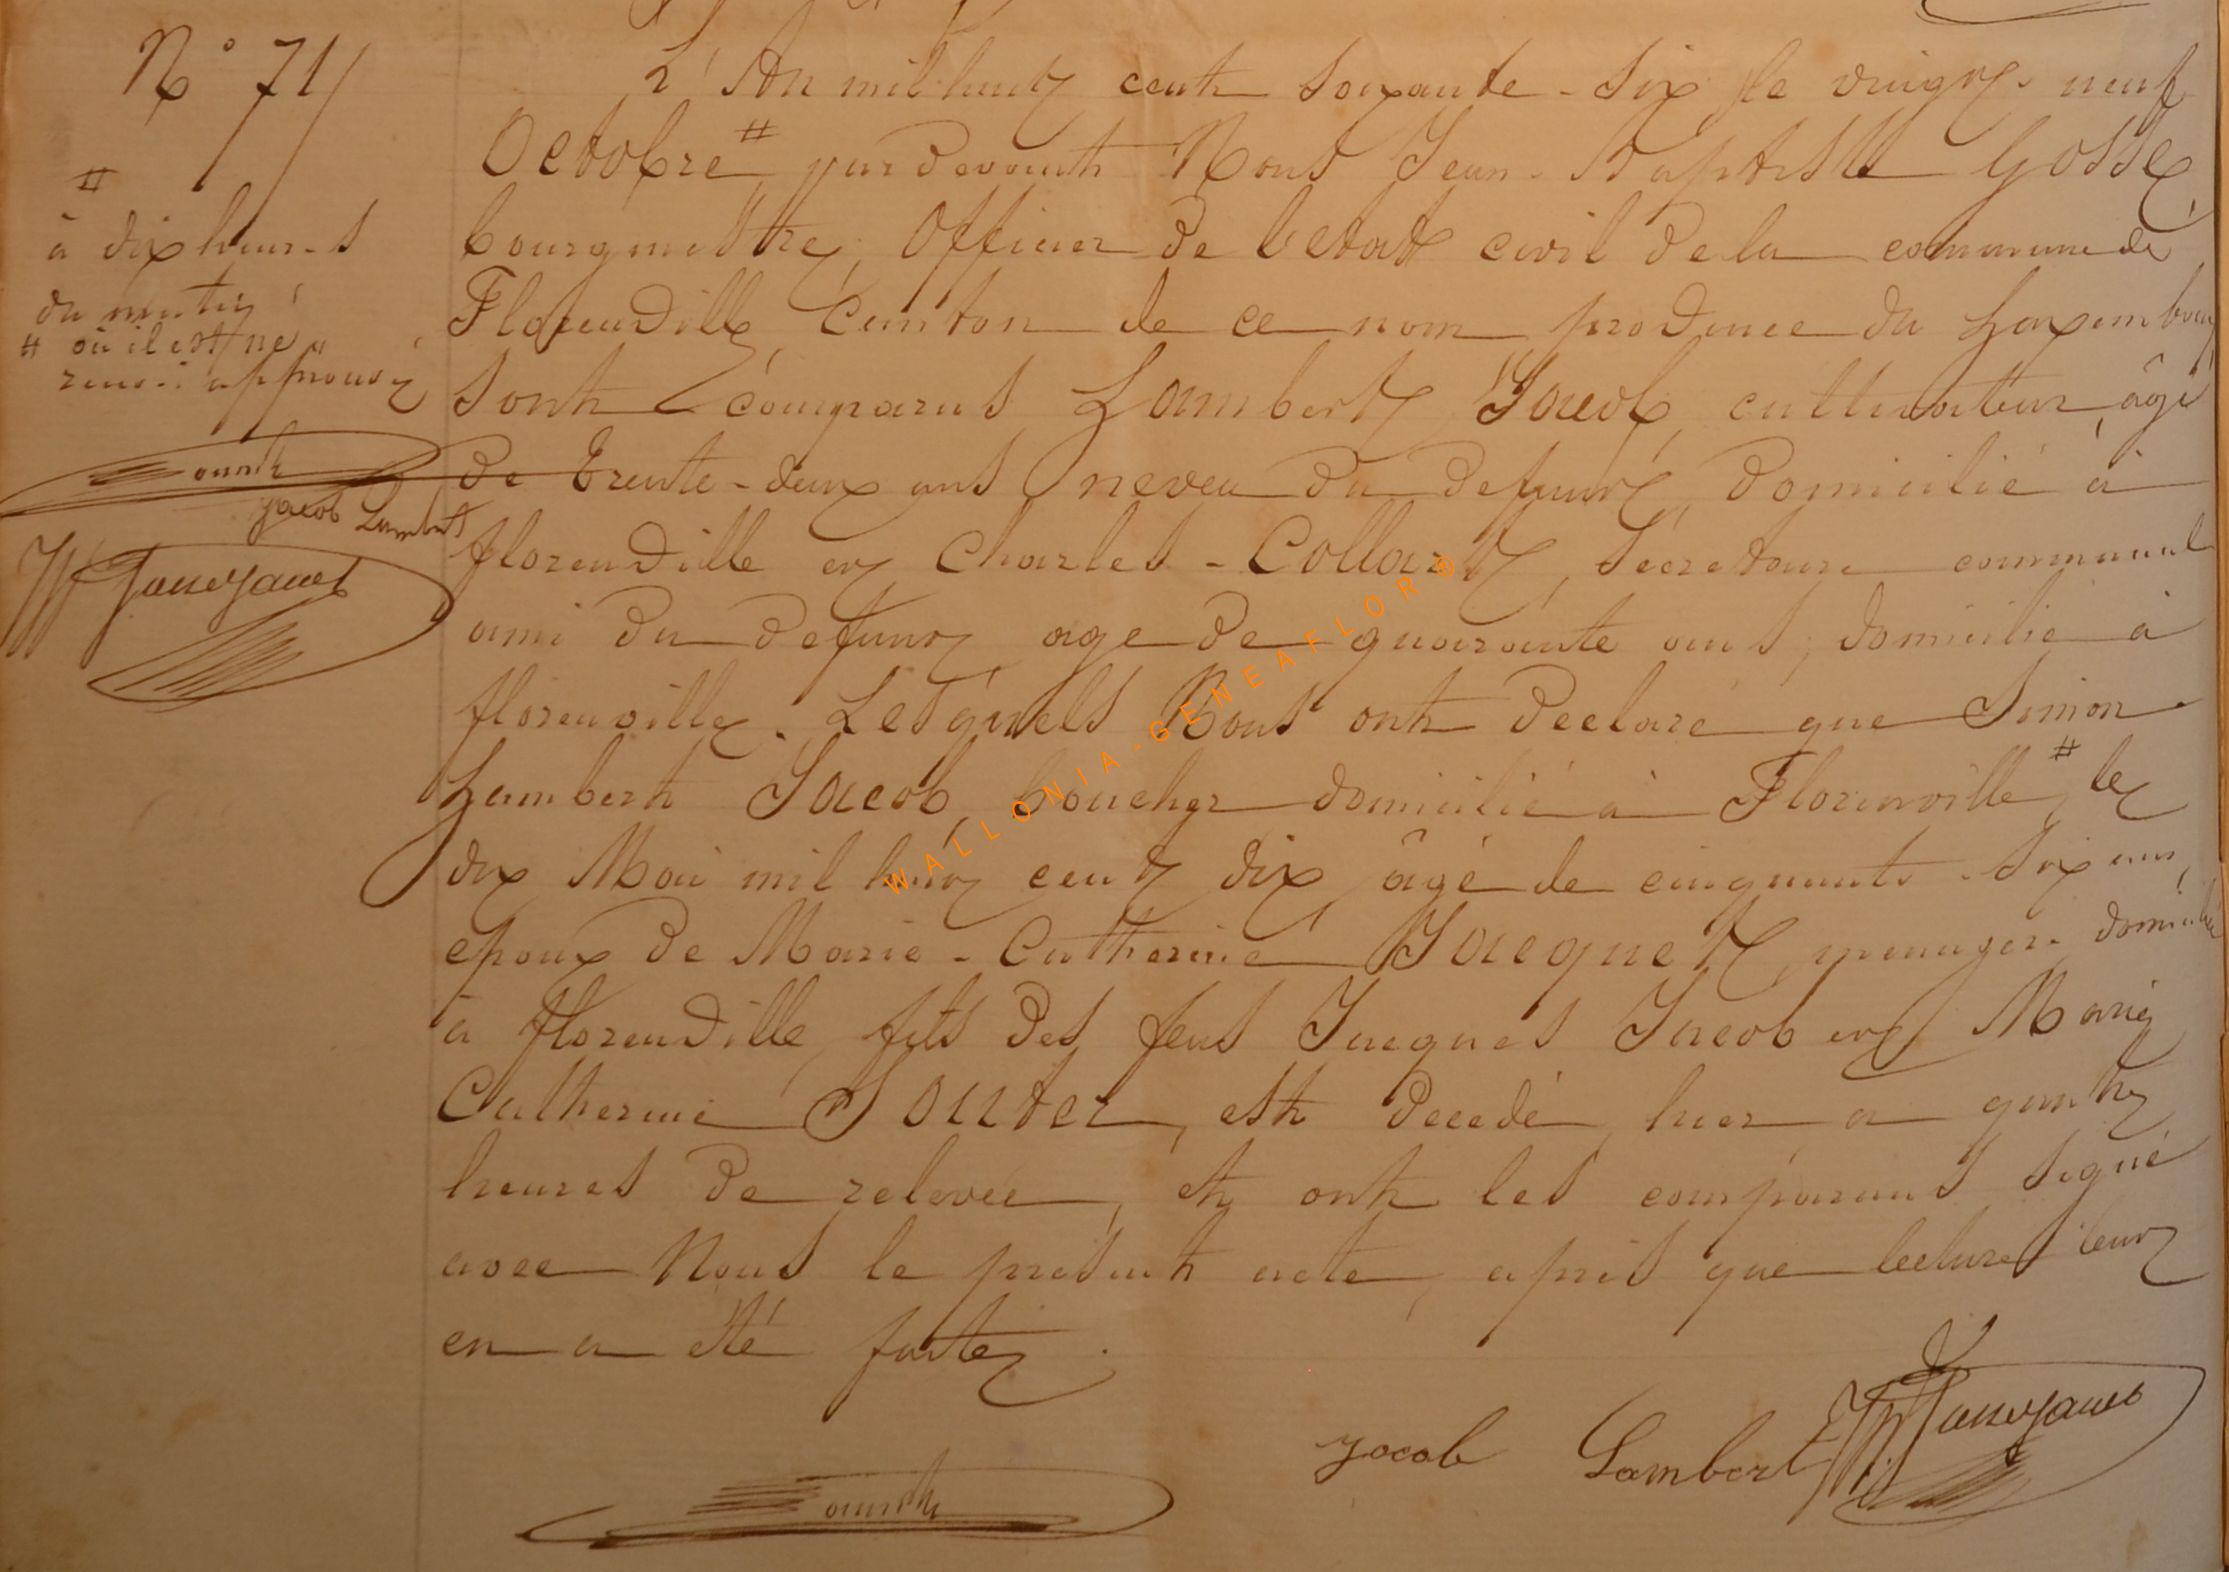 N° 71
#
à dix heures
du matin
# où il est né
renvoi approuvé
Jacob Lambert
L'An mil huit cent soixante-six, le vingt-neuf
Octobre # pardevant Nous Jean-Baptiste Gosse,
bourgmestre, Officier de l'etat civil de la commune de
Florenville, Canton de ce nom province du Luxembourg
sont comparus Lambert Jacob, cultivateur, âgé
de trente-deux ans neveu du defunt, domicilié à
florenville et Charles-Collart, Sécretaire communal
ami du defunt age de quarante ans, domicilié à
florenville. Lesquels Nous ont declaré que Simon
Lambert Jacob, boucher domicilié à Florenville, # le
dix Mai mil huit cent dix âgé de cinquante-six ans,
epoux de Marie-Catherine Jacquet, menagere domiciliée
à florenville, fils des feus Jacques Jacob et Marie
Catherine, est decedé hier a quatre
heures de relevée, et ont les comparants signé
avec Nous le présent acte, après que lecture leur
en a été faite.
Jacob Lambert
WALLONIA-GENEAFLOR®